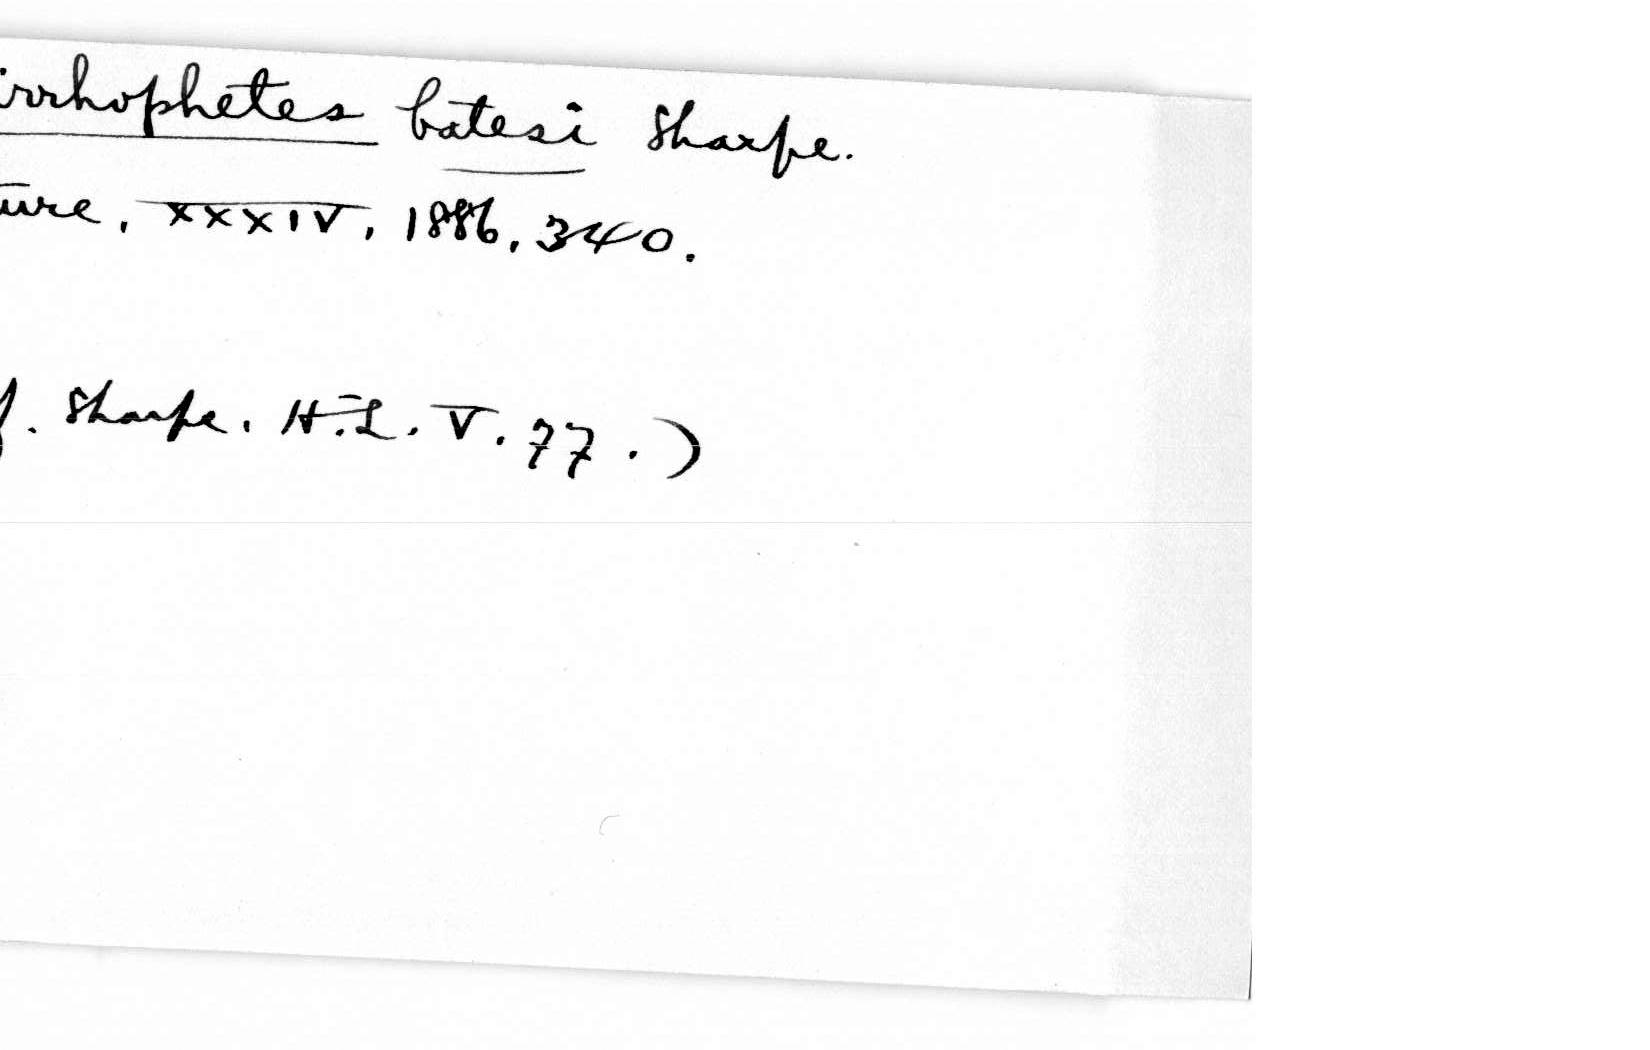 irrhophetes batesi Sharpe.
ture, XXXIV, 1886, 340.
f. Sharpe. H.L. V. 77.)